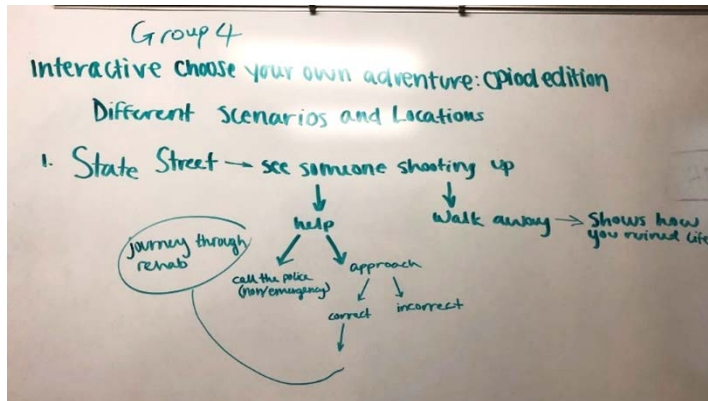 Group 4
Interactive choose your own adventure: opiod edition
Different Scenarios and Locations
1. State Street → see someone shooting up
help
walk away → Shows how
you ruined life
journey through
rehab
call the police
(non/emergency)
approach
correct
incorrect